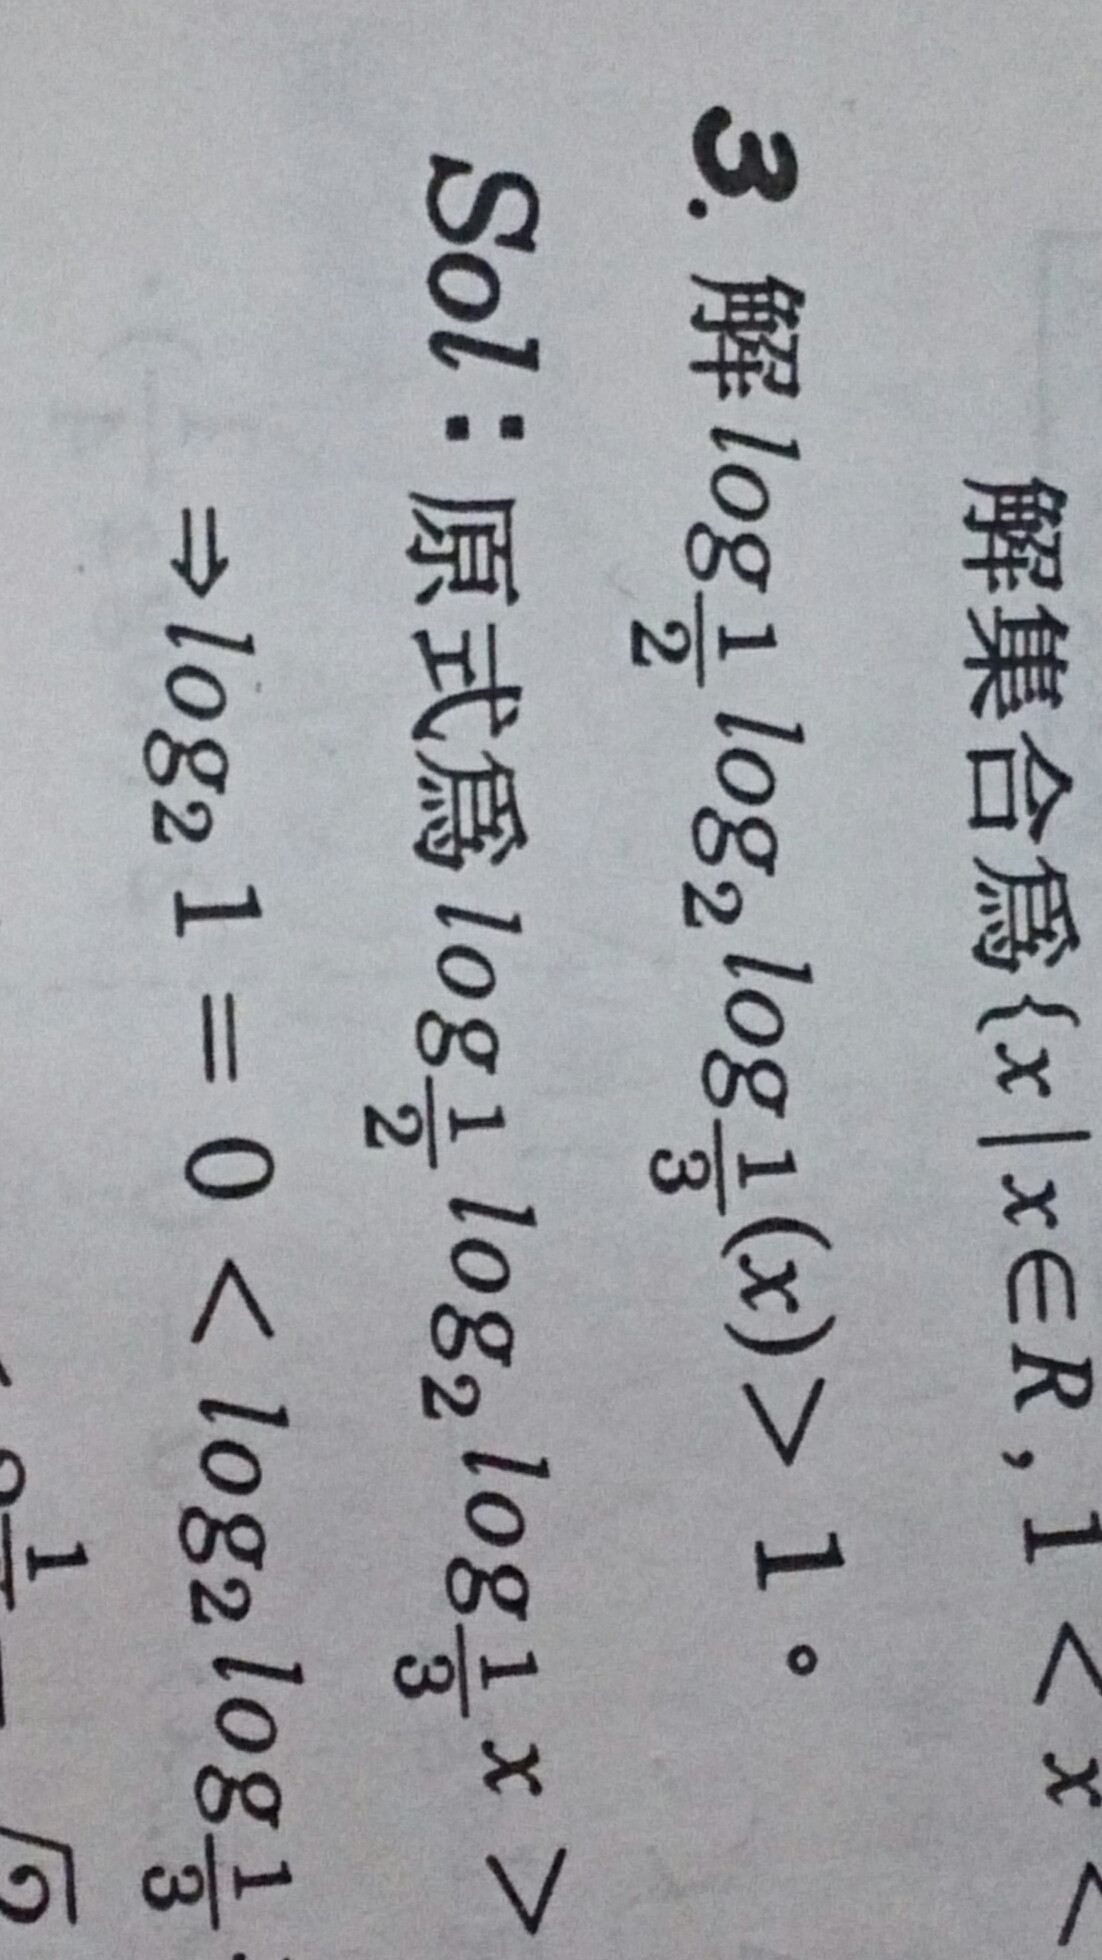 解集合爲{x|x∈R,1<x<
3. 解 log_{1/2} log_2 log_{1/3}(x)>1。
Sol:原式爲log_{1/2} log_2 log_{1/3} x>
⇒log_2 1=0<log_2 log_{1/3}